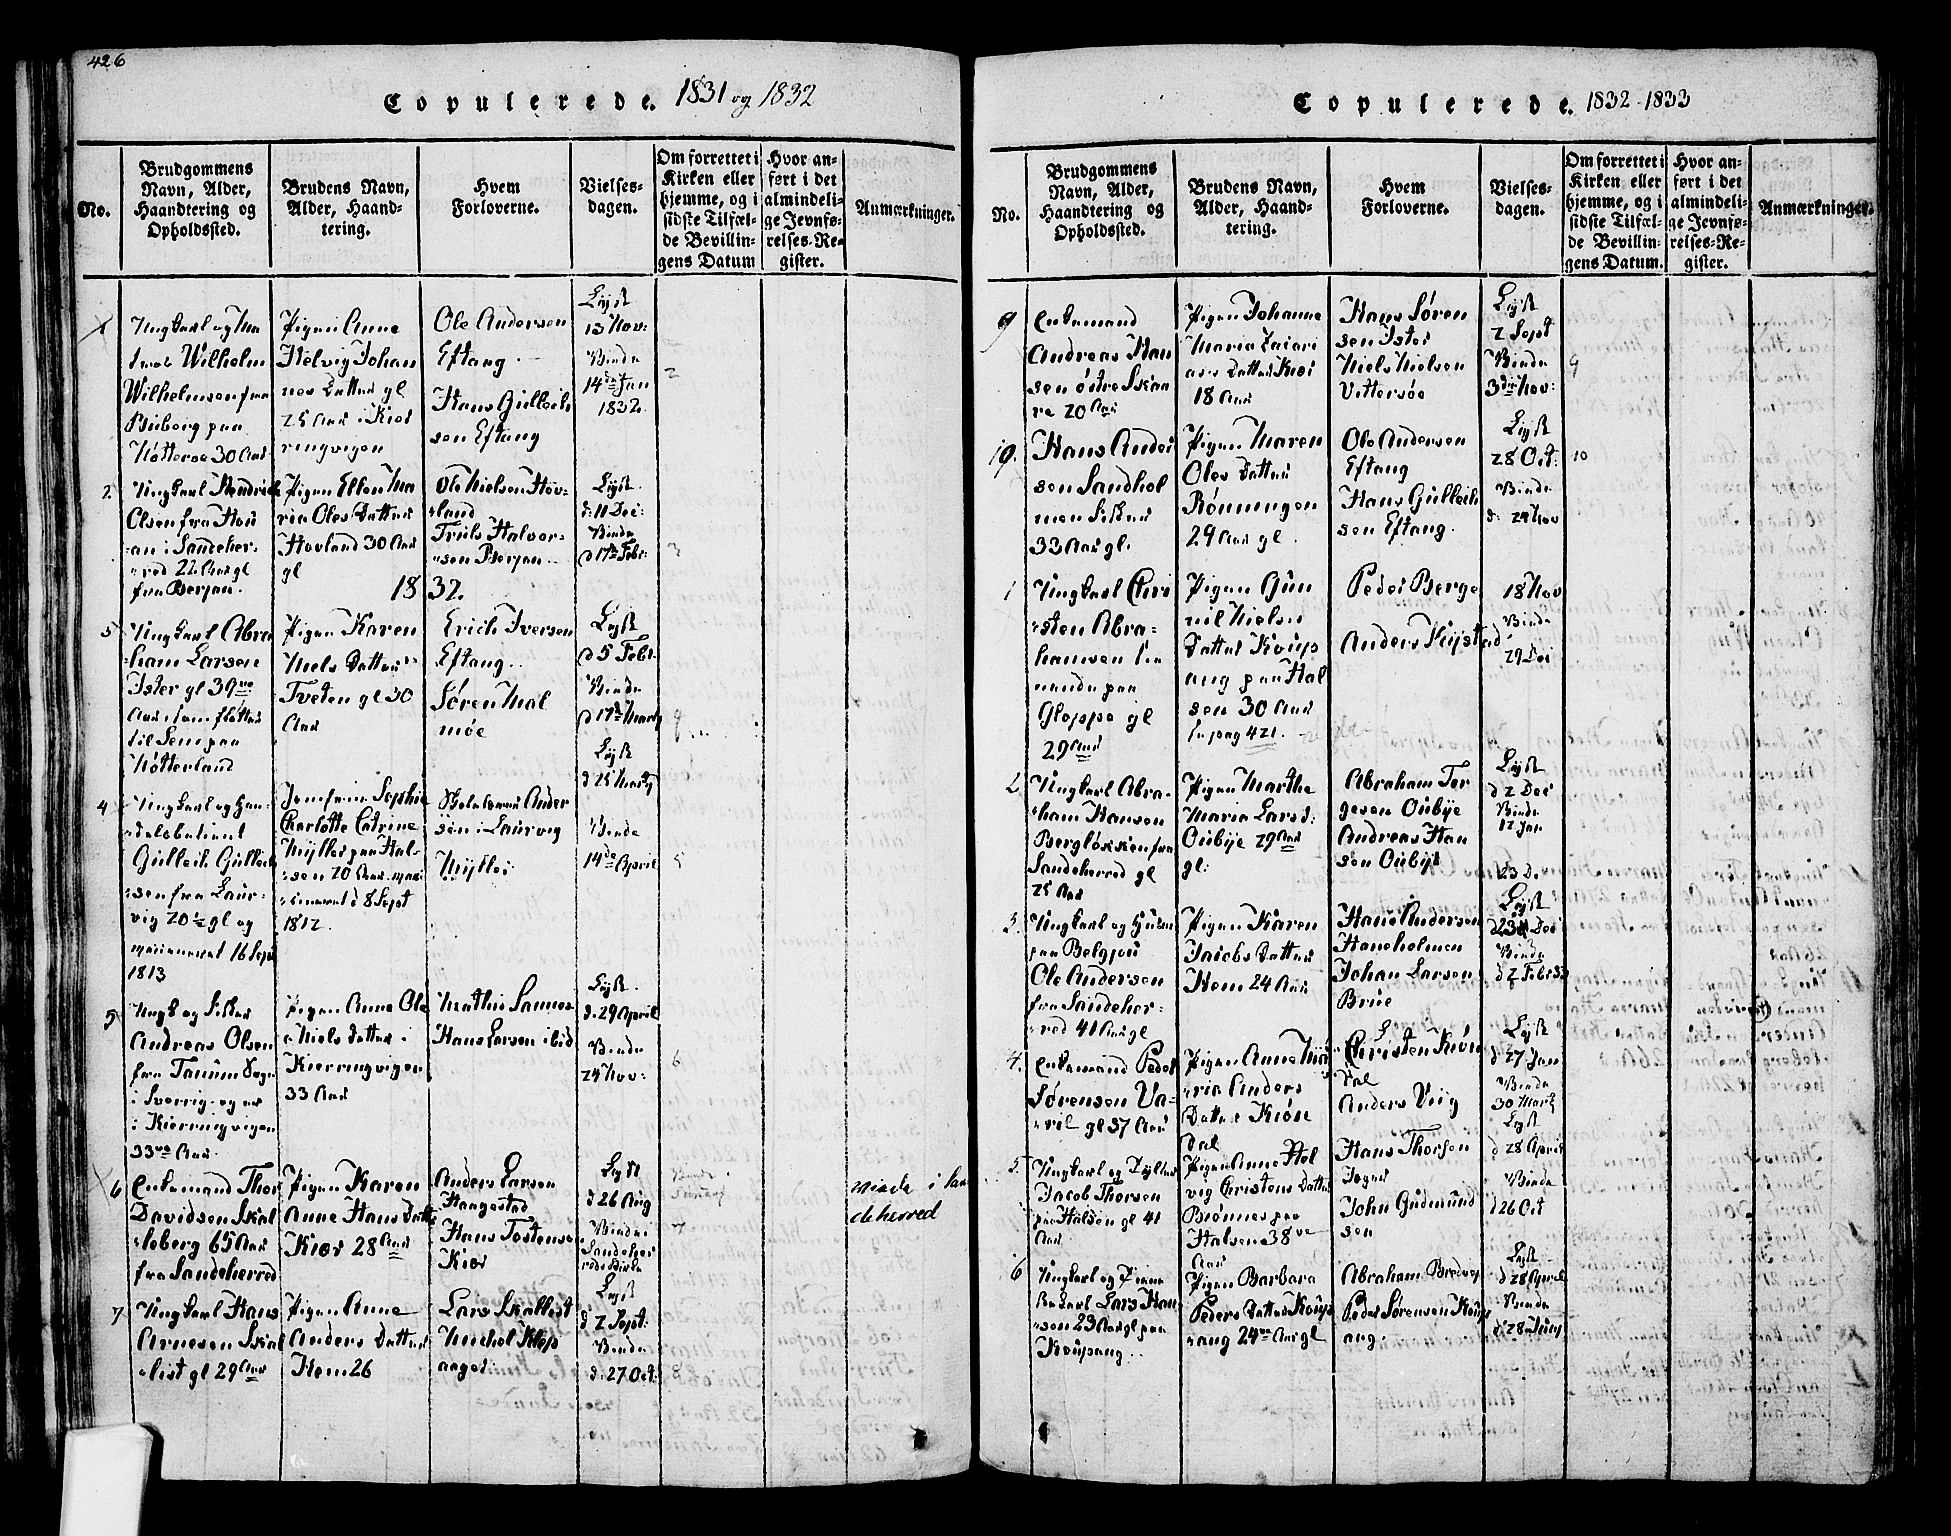 426
Copulerede. 1831 og 1832
No.
Brudgommens
Navn, Alder,
Haandtering og
Opholdssted.
Brudens Navn,
Alder, Haand-
tering.
Hvem
Forloverne.
Vielses-
dagen.
Om forrettet i
Kirken eller
hjemme, og i
sidste Tilfæl-
de Bevillin-
gens Datum
Hvor an-
ført i det
almindeli-
ge Jevnfø-
relses-Re-
gister.
Anmærkninger.
1
Ungkarl og
Wilhelm
Wilhelmsen fra
Buborg paa
Nötteröe 30 Aar
Pigen Anne
Helvig Johan
nes Datter gl
25 Aar i Kier
ringvigen
Ole Andersen
Eftang
Hans Gulleich
sen Eftang
Lyst
13 Nov:
Viede
14de Jan
1832.
2
2
Ungkarl Hendrich
Olsen fra Hou
an i Sandeher-
red 22 Aar gl
fra Berjan.
Pigen Ellen Ma
ria Oles Datter
Hovland 30 Aar
gl
Ole Nielsen Hov-
land
Truls Halvor-
sen Berjan
Lyst
d: 11 Dec:
Viede
d 17de Febr:
3
1832.
Ungkarl Abra
ham Larsen
Ister gl 39
Aar
til Sem paa
Nötterland
Pigen Karen
Niels Datter
Tveten gl 30
Aar
Erich Iversen
Eftang
Sören Mal
möe
Lyst
d 5 Febr.
Viede
d 17de Marty
4
Ungkarl og Han-
delsbetient
Gulleich Gulleich
sen fra Laur-
vig 20 gl og
16 Sept
1813
Jomfrue Sophie
Charlotte Catrine
Nyller paa Hal-
sen 20 Aar
8 Sept
1812.
Ander
sen i Laurvig
Nyller
Lyst
d 25 Marty
Viede
14de April
5
5
Ungk og Fisker
Andreas Olsen
fra Tanum Sogn
i Sverrig og er
i Kierringvigen
33 Aar
Pigen Anne Ole
a Niels Datter i
Kierringvigen
33 Aar
Mathis Sannes
Hans Larsen ibid
Lyst
d. 29 April
Viede
24 Nov:
6
6
Enkemand Thor
Davidsen Skal
leberg 65 Aar
fra Sandeherred
Pigen Karen
Anne Hans Datter
Kiær 28 Aar
Anders Larsen
Haugestad
Hans Tostensen
Kiær
Lyst
d 26 Aug
Viede i
Sandeher
reds Kirke
7
viede i San
deherred
7
Ungkarl Hans
Arnesen Skal
list gl 29 Aar
Pigen Anne
Anders Datter
Hem 26
Lars Skallist
Michel Klep
aager
Lyst
d: 2 Sept:
Viede
d: 27 Oct:
8
Copulerede. 1832-1833
No.
Brudgommens
Navn, Alder,
Haandtering og
Opholdssted.
Brudens Navn,
Alder, Haand-
tering.
Hvem
Forloverne.
Vielses-
dagen.
Om forrettet i
Kirken eller
hjemme, og i
sidste Tilfæl-
de Bevillin-
gens Datum.
Hvor an-
ført i det
almindeli-
ge Jevnfø-
relses-Re-
gister.
Anmærkninger.
9
Enkemand
Andreas Han
sen östre Skaa
re 70 Aar
Pigen Johanne
Maria Zacari
ases Datter Kiær
18 Aar
Hans Sören
sen Ister
Niels Nielsen
Vittersöe
Lyst
2 Sept
Viede
3die Nov:
9
10.
Hans Ander
sen Sandhol
men Fisker
33 Aar gl.
Pigen Maren
Oles Datter
Rönningen
29 Aar gl.
Ole Andersen
Eftang
Hans Gulleich
sen Eftang.
Lyst
28 Oct:
Viede
d: 24 Nov
10
1
Ungkarl Chri
sten Abra-
hamsen
paa
Gloppe gl
29 Aar
Pigen Gun
nil Niels
Datter Koup
ang paa Hal
sen 30 Aar
pag 421.
Peder Berge
Anders
18 Nov
Viede
29 Dec
2
Ungkarl Abra-
ham Hansen
Berglökken fra
Sandeherred gl
25 Aar
Pigen Marthe
Maria Lars d:
Oubye 29 Aar
gl:
Abraham Tor
gersen Oubye
Andreas Han
sen Oubye
Lyst
d 2 Dec
Viede
12 Jan
23 De
3.
Ungkarl og
paa Belgjou
Ole Andersen
fra Sandeher-
red 41 Aar gl
Pigen Karen
Jacobs Datter
Hem 24 Aar
Hans Andersen
Haneholmen
Johan Larsen
Brue
Lyst
d 23 Dec
Viede
d 2 Febr 33
4.
Enkemand Peder
Sörensen Va-
vil gl 37 Aar
Pigen Anne Ma
ria Anders
Datter Kiöne
dal
Christen Kiön
dal
Anders Vrig
Lyst
d 27 Jan
Viede
30 Marty
5.
Ungkarl og
Jacob Thorsen
paa Halsen gl 41
Aar
Pigen Anne Hel
vig Christens Datter
Brönnes paa
Halsen 38
Aar
Hans Thorsen
John Gudmund
sen
Lyst
d 28 April
Viede
d 26 Oct
6
Ungkarl og
Lars Han
sen 23 Aar gl paa
Koupang
Pigen Barbara
Peders Datter Koup
ang 24 Aar gl
Abraham
Peder Sörensen Koup
ang
Lyst
d 28 April
Viede
d 28 Juny